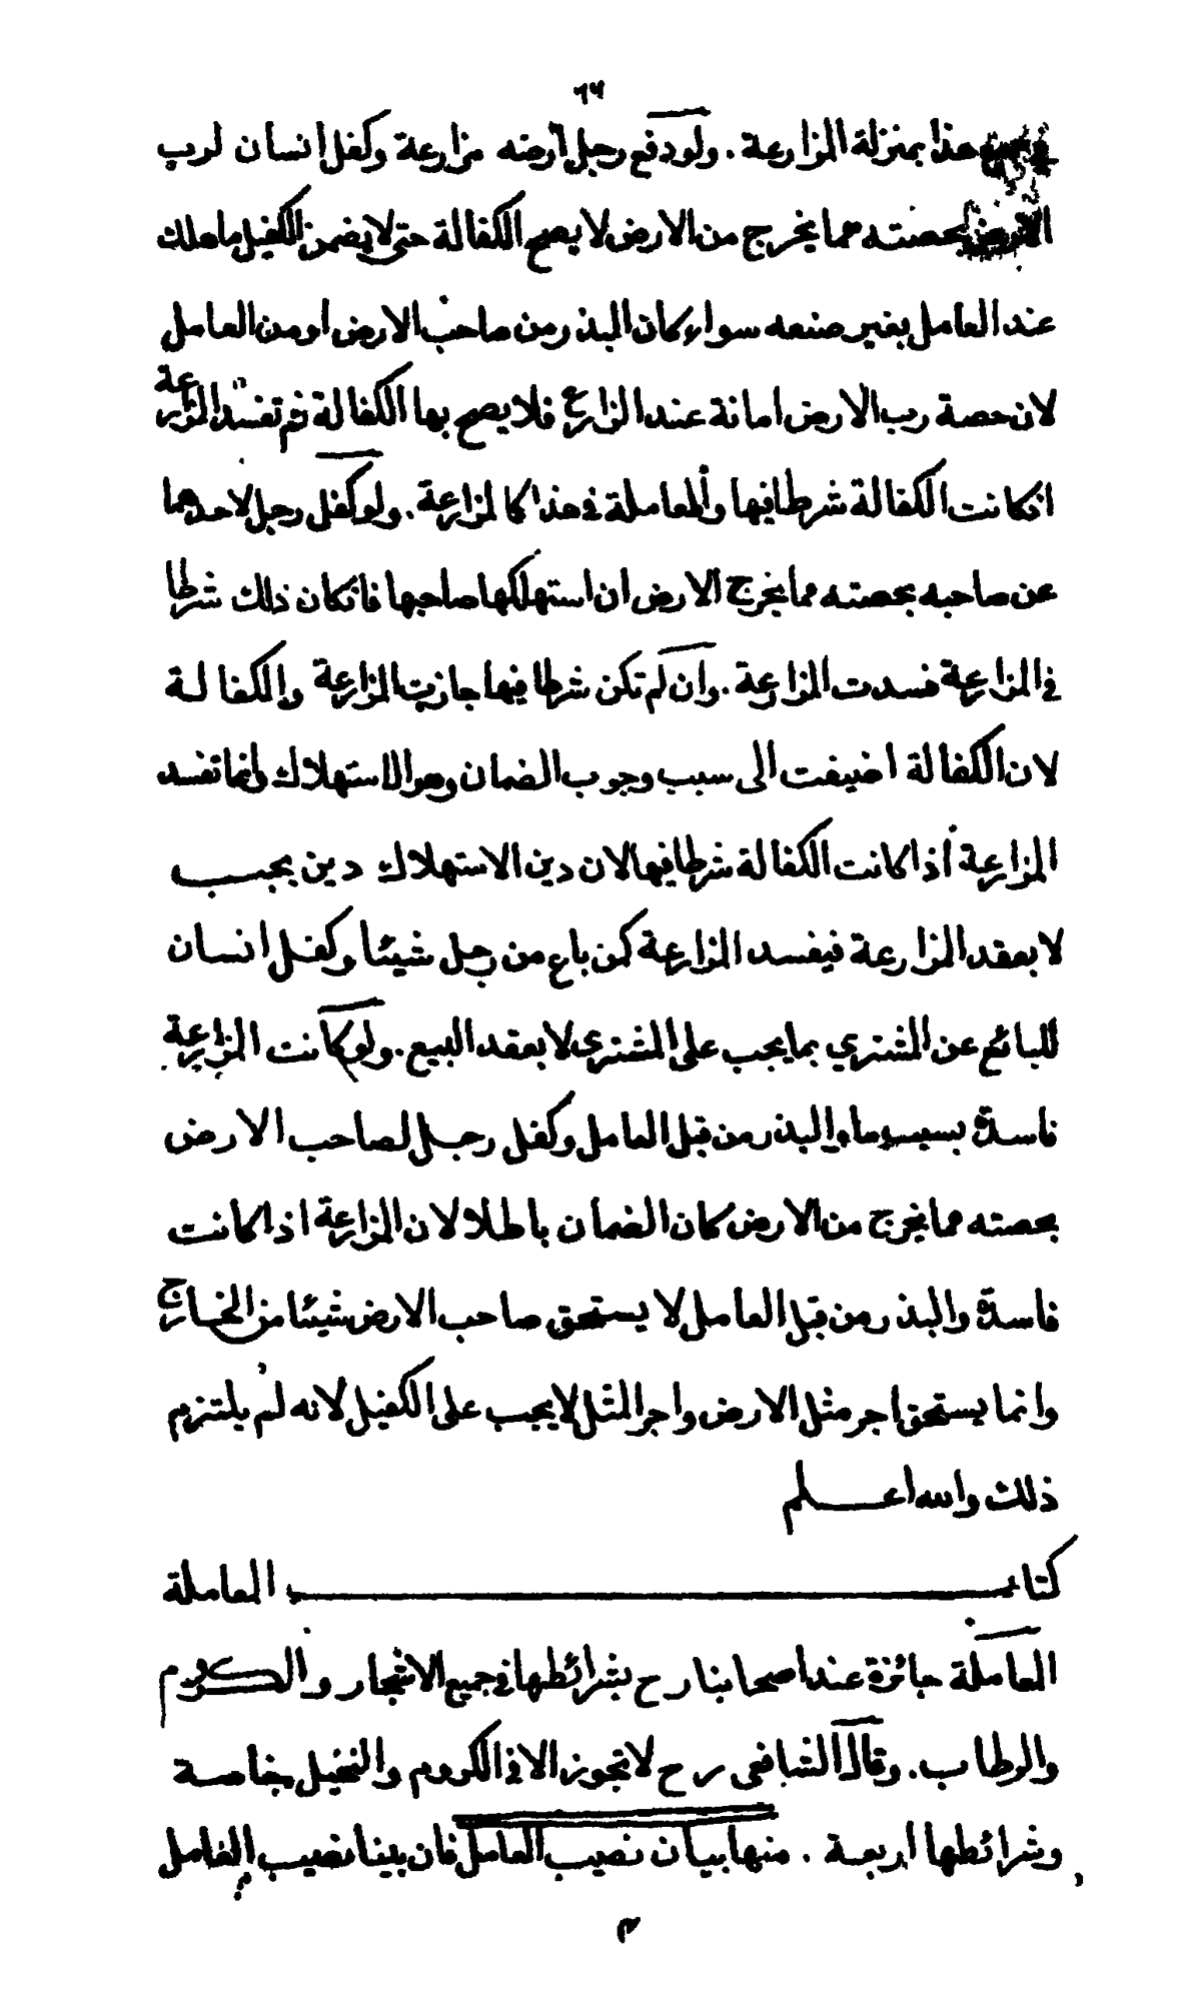 ٦٦
هذا بمنزلة المزارعة . ولو دفع رجل أرضه مزارعة وكفل انسان لرب
الارض بحصته مما يخرج من الارض لا يصح الكفالة حتى لا يضمن الكفيل ما هلك
عند العامل بغير صنعه سواء كان البذر من صاحب الارض او من العامل
لان حصة رب الارض امانة عند المزارع فلا يصح بها الكفالة ثم تفسد المزارعة
انكانت الكفالة شرطا فيها والمعاملة في هذا كالمزارعة . ولو كفل رجل لاحدهما
عن صاحبه بحصته مما يخرج الارض ان استهلكها صاحبها فانكان ذلك شرطا
في المزارعة فسدت المزارعة . وان لم تكن شرطا فيها جازت المزارعة والكفالة
لان الكفالة اضيفت الى سبب وجوب الضمان وهو الاستهلاك وانما تفسد
المزارعة اذا كانت الكفالة شرطا فيها لان دين الاستهلاك دين يجب
لا بعقد المزارعة فيفسد المزارعة كمن باع من رجل شيئا وكفل انسان
للبائع عن المشتري بما يجب على المشتري لا بعقد البيع . ولو كانت المزارعة
فاسدة بسبب ما والبذر من قبل العامل وكفل رجل لصاحب الارض
بحصته مما يخرج من الارض كان الضمان باطلا لان المزارعة اذا كانت
فاسدة والبذر من قبل العامل لا يستحق صاحب الارض شيئا من الخارج
وانما يستحق اجر مثل الارض واجر المثل لا يجب على الكفيل لانه لم يلتزم
ذلك والله اعلم
كتاب المعاملة
المعاملة جائزة عند اصحابنا رح بشرائطها في جميع الاشجار والكروم
والرطاب . وقال الشافعى رح لا تجوز الا في الكروم والنخيل خاصة
وشرائطها اربعة . منها بيان نصيب العامل فان بينا نصيب العامل
م